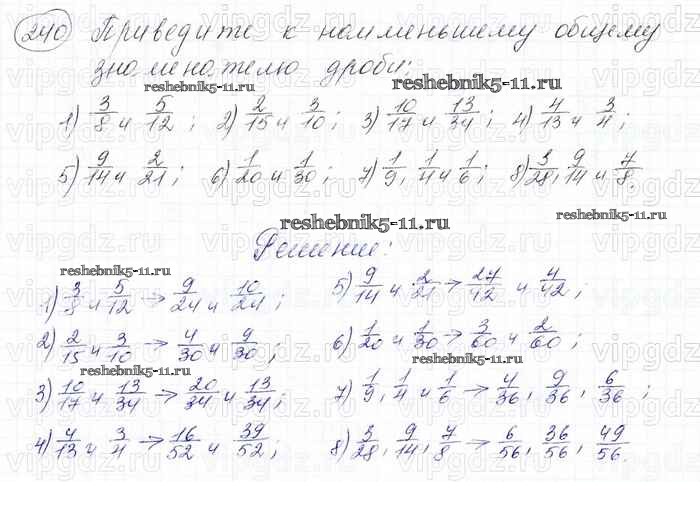 240 Приведите к наименьшему общему
знаменателю дроби:
reshebnik5-11.ru
reshebnik5-11.ru
reshebnik5-11.ru
1) 3/8 и 5/12; 2) 2/15 и 3/10; 3) 10/17 и 13/34; 4) 4/13 и 3/4;
5) 9/14 и 2/21; 6) 1/20 и 1/30; 7) 1/9, 1/4 и 1/6; 8) 3/28, 9/14 и 7/8.
reshebnik5-11.ru
reshebnik5-11.ru
Решение:
reshebnik5-11.ru
1) 3/8 и 5/12 → 9/24 и 10/24;
2) 2/15 и 3/10 → 4/30 и 9/30;
reshebnik5-11.ru
3) 10/17 и 13/34 → 20/34 и 13/34;
4) 4/13 и 3/4 → 16/52 и 39/52;
5) 9/14 и 2/21 → 27/42 и 4/42;
6) 1/20 и 1/30 → 3/60 и 2/60;
reshebnik5-11.ru
7) 1/9, 1/4 и 1/6 → 4/36, 9/36, 6/36;
8) 3/28, 9/14, 7/8 → 6/56, 36/56, 49/56.
reshebnik5-11.ru